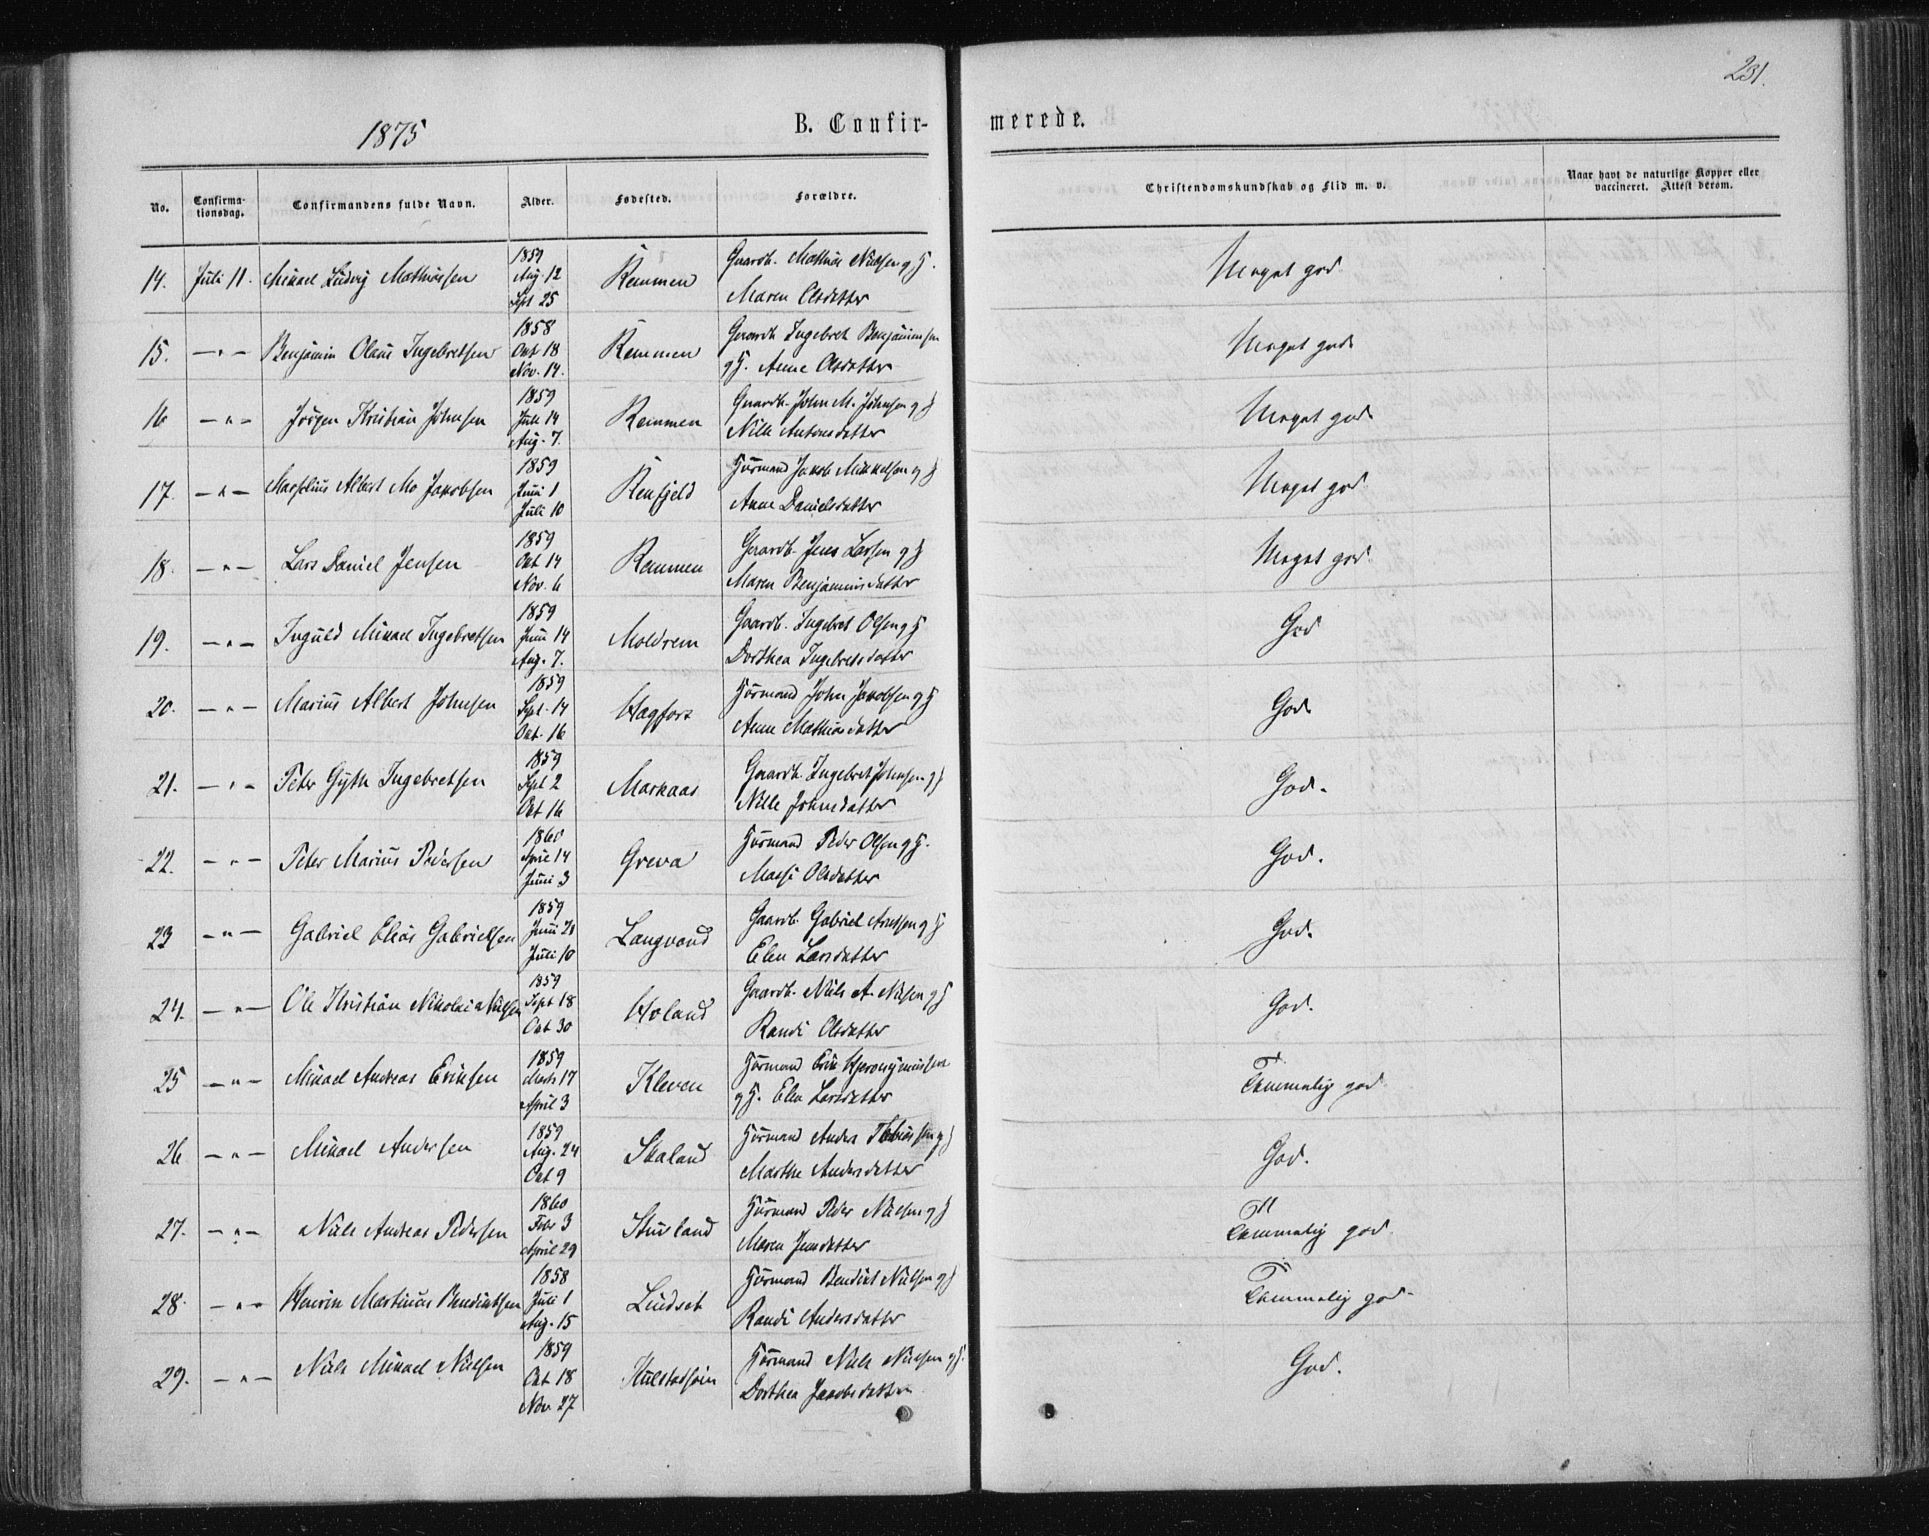 231.
1875
B. Confir-
merede.
No.
Confirma-
tionsdag.
Confirmandens fulde Navn.
Alder.
Fødested.
Forældre.
Christendomskundskab og Flid m. v.
Naar havt de naturlige Kopper eller
vaccineret. Attest derom.
14. Juli 11. Mikael Ludvig Mathiasen
1859
Aug. 12
Sept 25
Remmen
Gaardb. Mathias Nielsen og H.
Maren Olsdatter
Meget god
15. — " — Benjamin Olaus Ingebretsen
1858
Okt 18
Nov. 14.
Remmen
Gaardb Ingebret Benjaminsen
og H. Anne Olsdatter
Meget god
16 — " — Jørgen Kristian Johnsen
1859
Juli 14
Aug. 7.
Remmen
Gaardb. John M. Johnsen og H
Nille Antonsdatter
Meget god
17. — " — Marselius Albert Mo Jakobsen
1859
Juni 1
Juli 10
Renfjeld
Huusmand Jakob Mikkelsen og H
Anne Danielsdatter
Meget god
18. — " — Lars Daniel Jensen
1859
Okt 14
Nov. 6
Remmen
Gaardb. Jens Larsen og H
Maren Benjaminsdatter
Meget god
19. — " — Inguld Mikael Ingebretsen
1859
Juni 14
Aug. 7.
Moldrem
Gaardb. Ingebret Olsen og H
Dorthea Ingebretsdatter
God
20. — " — Marius Albert Johnsen
1859
Sept. 14
Okt. 16
Hagfors
Huusmand John Jakobsen og H
Anne Mathiasdatter
God
21. — " — Peter Gyth Ingebretsen
1859
Sept 2
Okt 16
Markaas
Gaardb. Ingebret Johnsen og H
Nille Johnsdatter
God.
22. — " — Peter Marius Pedersen
1860
April 14
Juni 3
Greva
Huusmand Peder Olsen og H.
Olsdatter
God.
23 — " — Gabriel Elias Gabrielsen
1859
Juni 21
Juli 10
Langvand
Gaardb. Gabriel Arntsen og H
Elen Larsdatter
God.
24. — " — Ole Kristian Nikolai Nielsen
1859
Sept 18
Okt 30
Hvland
Gaardb. Niels A. Nielsen og H
Randi Olsdatter
God.
25 — " — Mikael Andreas Eriksen
1859
Marts 17
April 3
Kleven
Huusmand Erik Hieronymussen
og H. Elen Larsdatter
Temmelig god
26 — " — Mikael Andersen
1859
Aug. 24
Okt 9
Skaland
Huusmand Anders Tobiassen og H
Marthe Andersdatter
God.
27. — " — Niels Andreas Pedersen
1860
Febr 3
April 29
Stuvland
Huusmand Peder Nielsen og H
Maren Jensdatter
Temmelig god
28. — " — Henrik Martinus Bendiktsen
1858
Juli 1
Aug. 15
Lindset
Huusmand Bendikt Nielsen og H
Randi Andersdatter
Temmelig god.
29. — " — Niels Mikael Nielsen
1859
Okt 18
Nov 27
Hulstadsøien
Huusmand Niels Nielsen og H.
Dorthea Jakobsdatter
God.